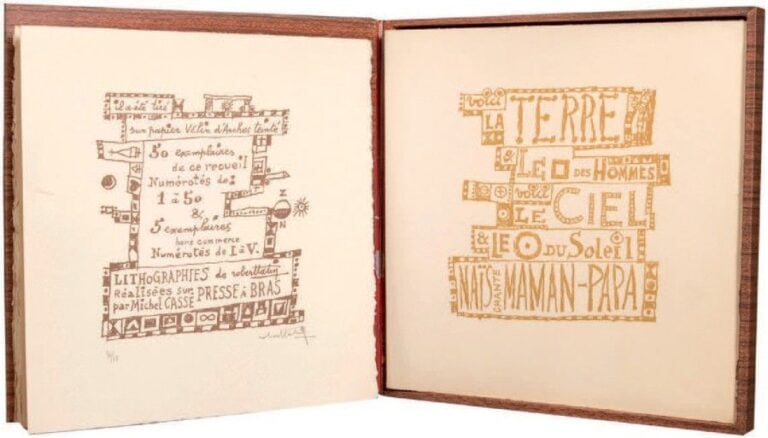 il a été tiré
sur papier Vélin d'Arches teinté
50 exemplaires
de ce recueil
Numérotés de:
1 à 50
&
5 exemplaires
hors commerce
Numérotés de I à V.
Z
N
LITHOGRAPHIES de robert tatin
Réalisées sur PRESSE à BRAS
par Michel CASSÉ
voici
LA TERRE
& LE DES HOMMES
voici
LE CIEL
& LE DU SoLeil
NAÏS CHANTE MAMAN-PAPA